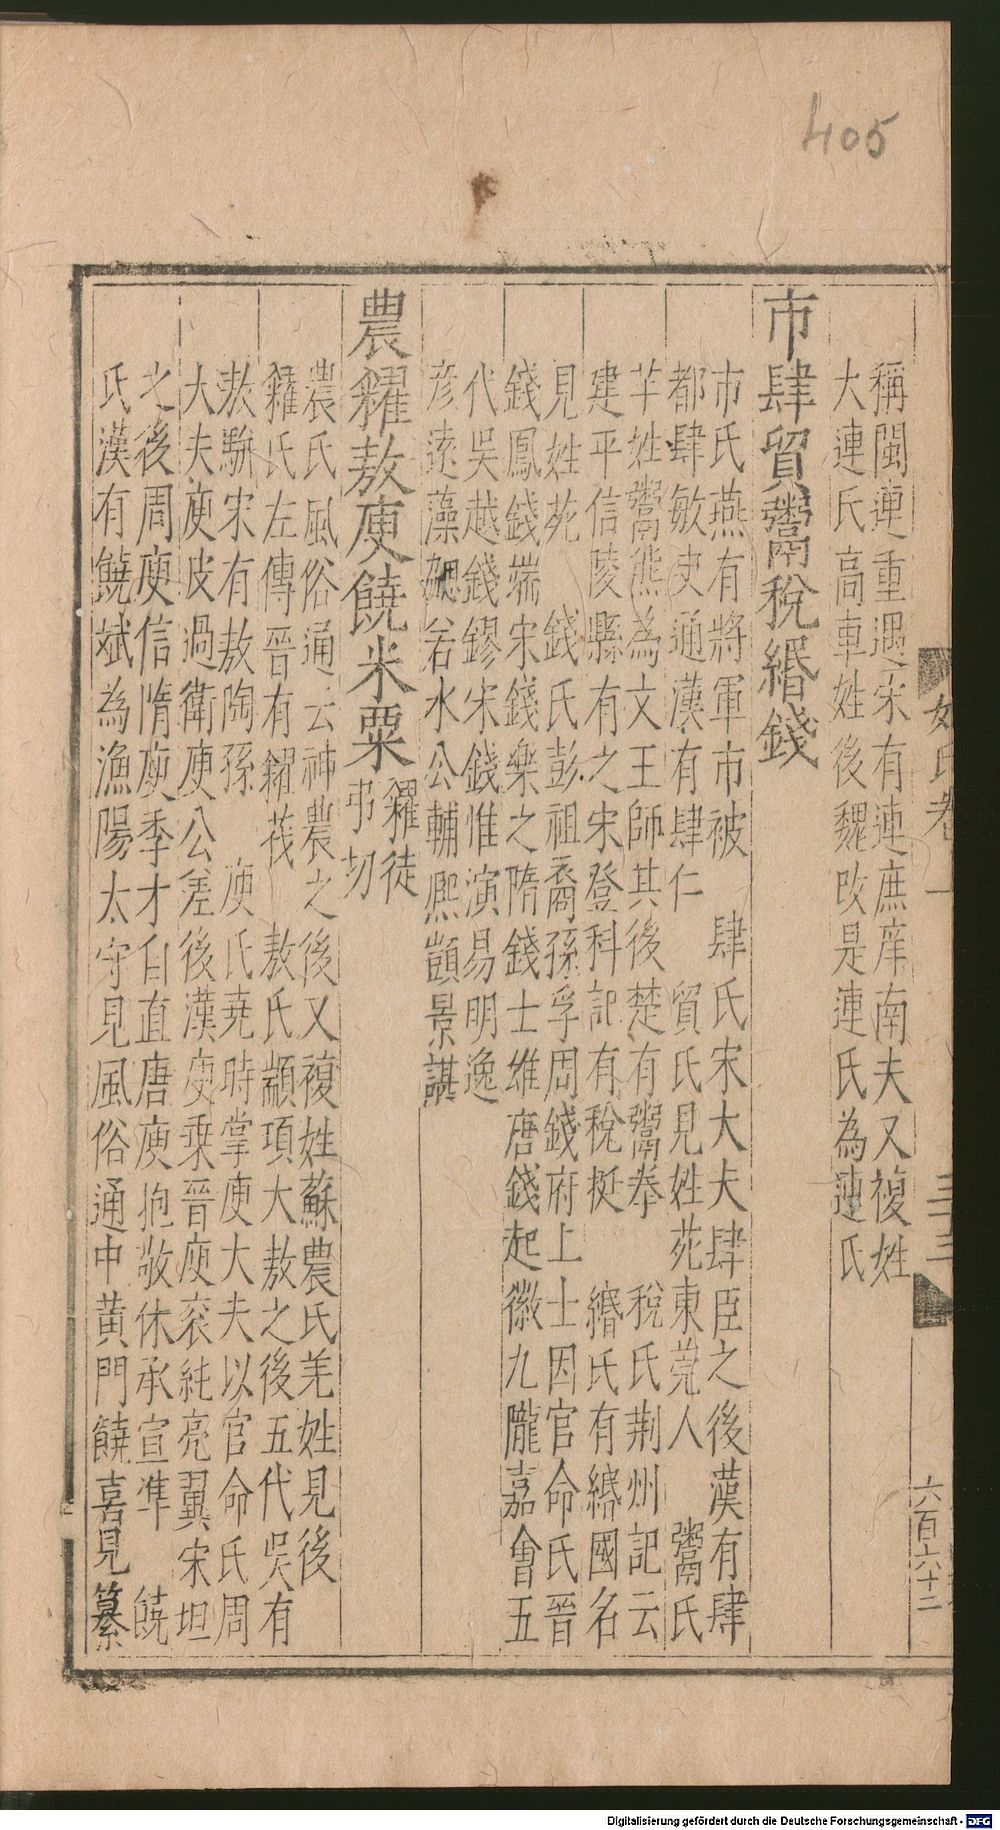 405
稱閩蓮重遇宋有連庶庠南夫又複姓
大連氏高車姓後魏改是連氏為連氏
市肆貿鬻稅緡錢
市氏燕有將軍市被　肆氏宋大夫肆臣之後漢有肆
都肆敏史通漢有肆仁　貿氏見姓苑東莞人　鬻氏
芊姓鬻熊為文王師其後楚有鬻拳　稅氏荆州記云
建平信陵縣有之宋登科記有稅挺　緡氏有緡國名
見姓苑　錢氏彭祖裔孫孚周錢府上士因官命氏晉
錢鳳錢端宋錢樂之隋錢士雄唐錢起徽九隴嘉會五
代吳越錢鏐宋錢惟演易明逸
彦遠藻勰若水公輔熙顗景諶
農糴敖庾饒米粟 糴徒弔切
農氏風俗通云神農之後又複姓蘇農氏羌姓見後
糴氏左傳晉有糴茷　敖氏顓頊大敖之後五代吳有
敖駢宋有敖陶孫　庾氏堯時掌庾大夫以官命氏周
大夫庾皮過衛庾公差後漢庾乗晉庾衮純亮翼宋坦
之後周庾信隋庾季才自直唐庾抱敬休承宣凖　饒
氏漢有饒斌為漁陽太守見風俗通中黄門饒喜見纂
姓氏卷一
三十三
六百六十二
Digitalisierung gefördert durch die Deutsche Forschungsgemeinschaft - DFG